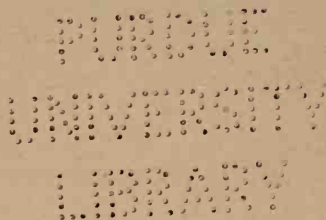 PURDUE
UNIVERSITY
LIBRARY